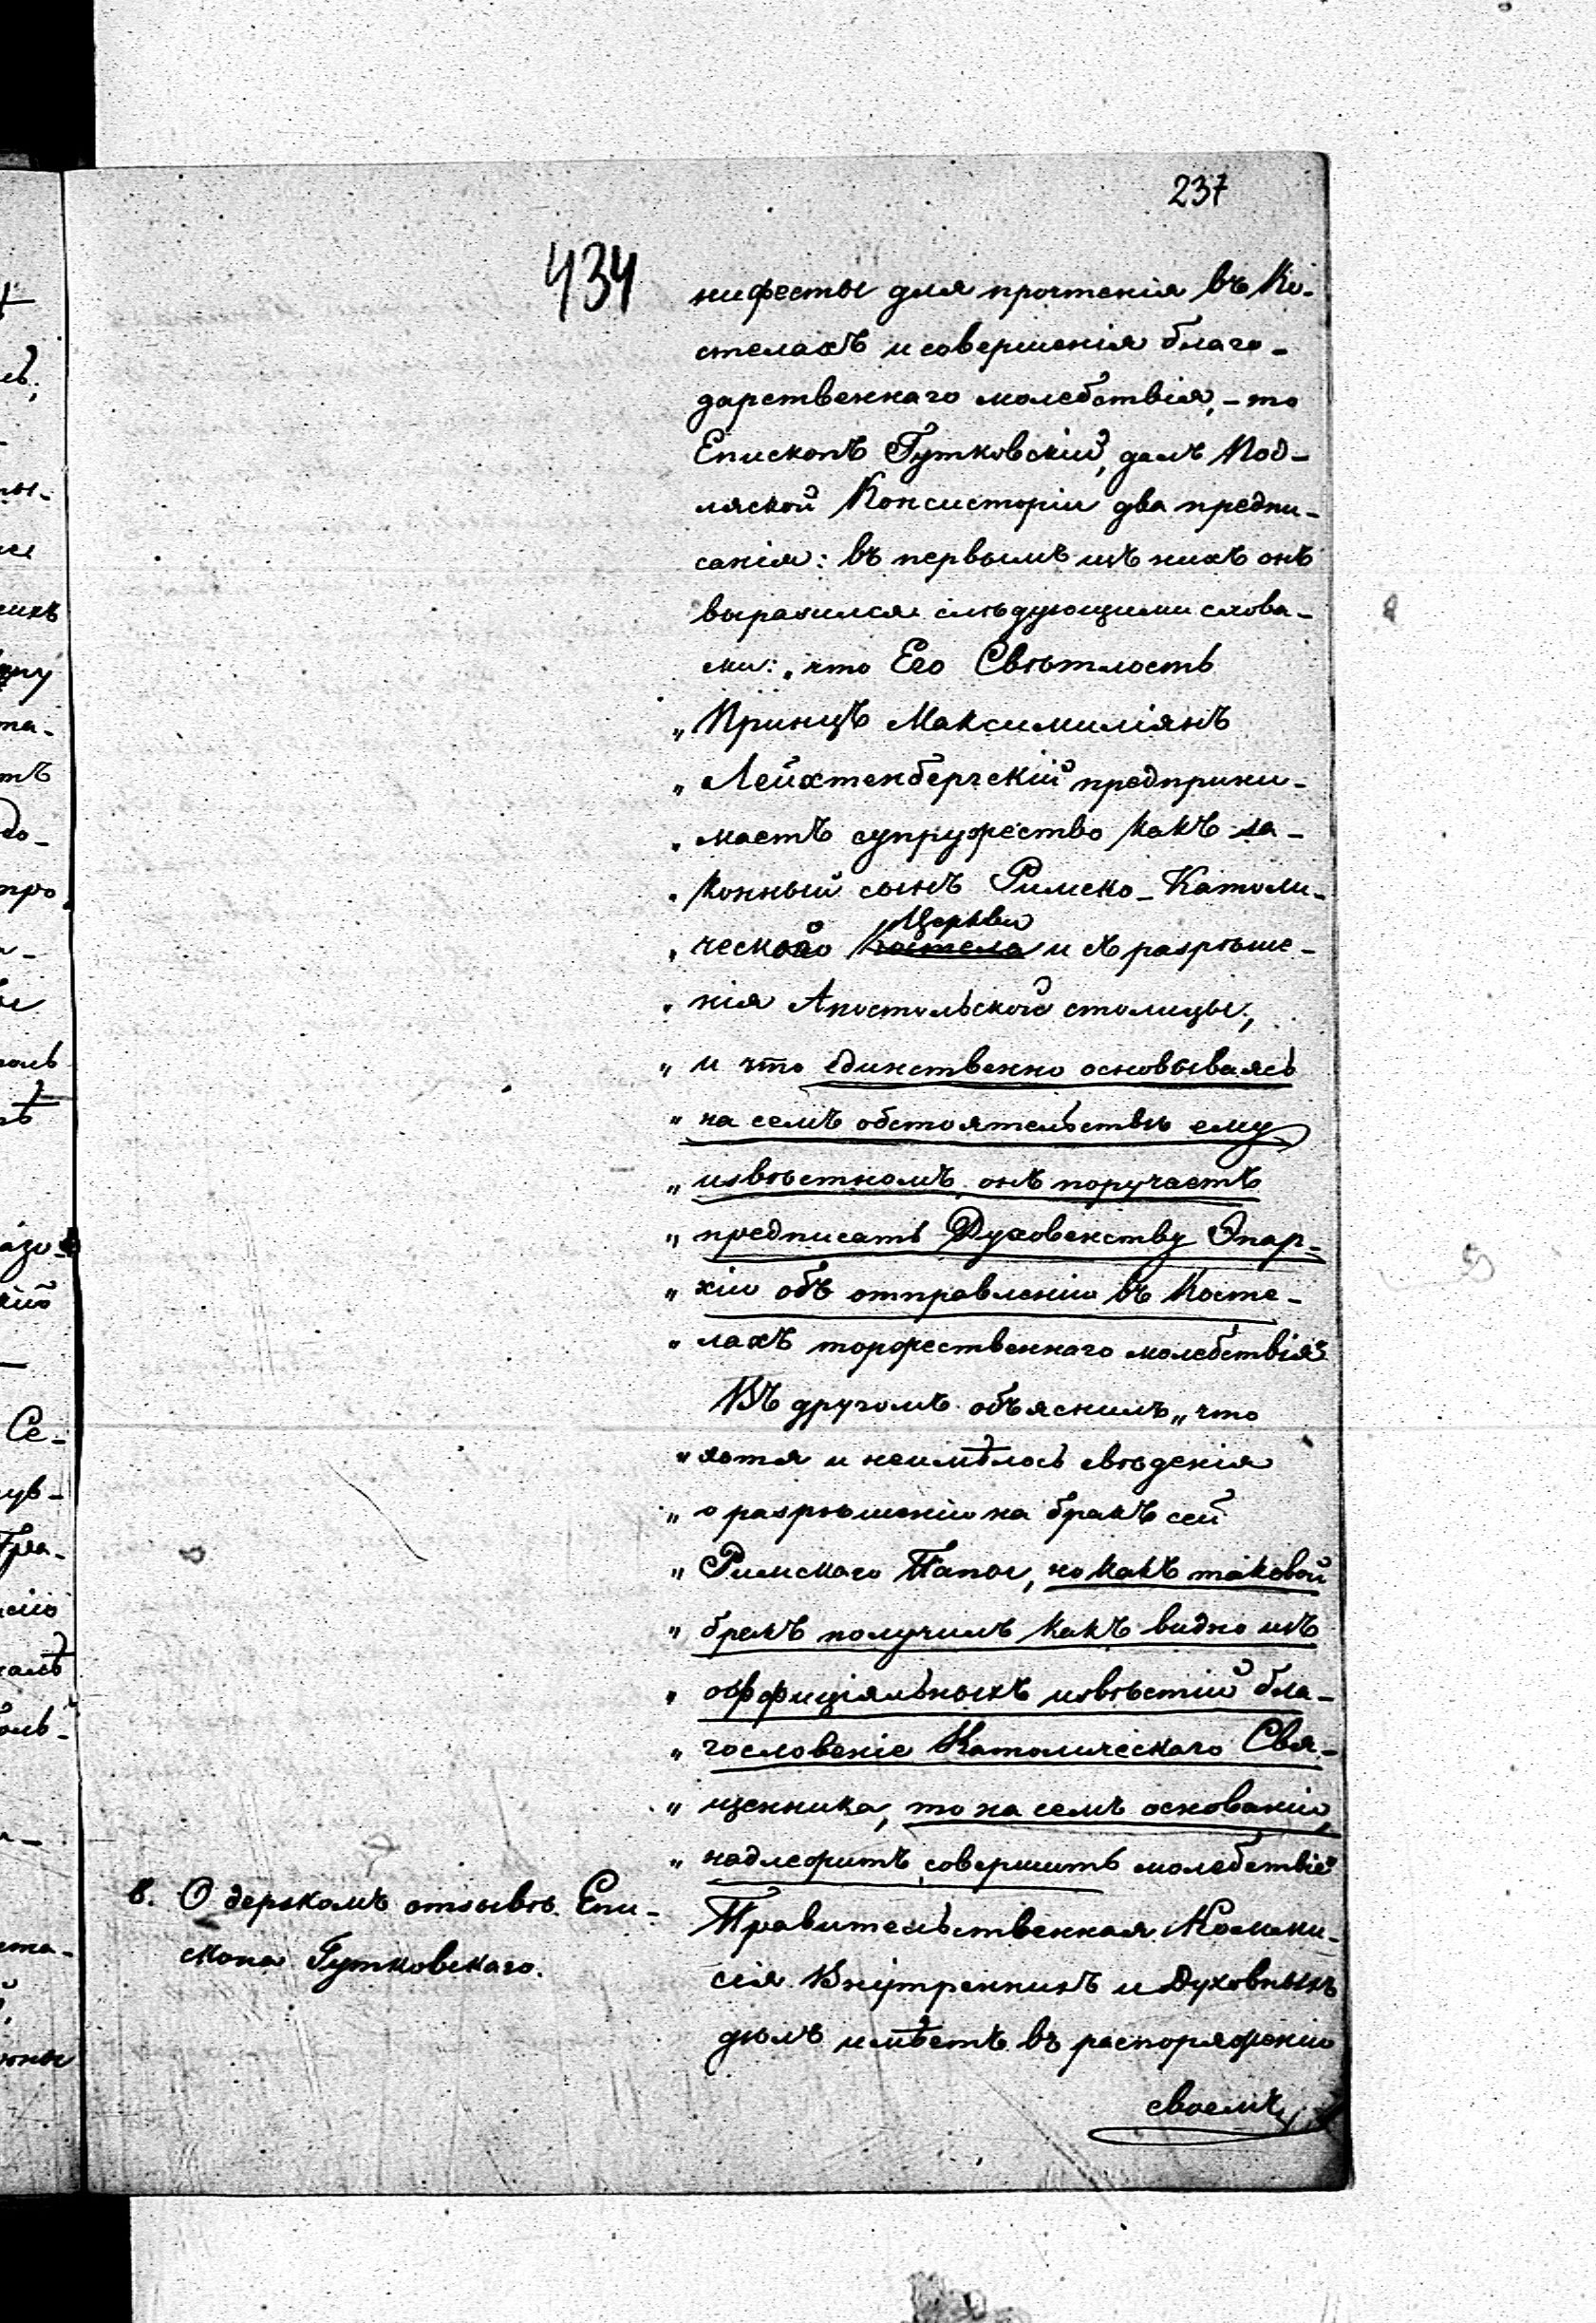 237
434
нифесты для прочтенія въ Ко-
стелахъ и совершенія благо-
дарственнаго молебствія, - то
Епископъ Гутковскій, далъ Под-
ляской Консисторіи два предпи-
санія: въ первымъ изъ нихъ онъ
выразился слѣдующими слова-
ми: „что Его Свѣтлость
„Принцъ Максимиліянъ
„Лейхтенбергскій предприни-
„маетъ супружество какъ за-
„конный сынъ Римско-Католи-
Церкви
„ческой Костела и съ разрѣше-
„нія Апостольской столицы,
„и что единственно основываясь
„на семъ обстоятельствѣ ему
„извѣстномъ, онъ поручаетъ
„предписать Духовенству Эпар-
„хіи объ отправленіи въ Косте-
„лахъ торжественнаго молебствія“
Въ другомъ объяснилъ „что
„хотя и неимѣлось свѣденія
„о разрѣшеніи на бракъ сей
„Римскаго Папы, но какъ таковой
„бракъ получилъ какъ видно изъ
„оффиціяльныхъ извѣстій бла-
„гословеніе Католическаго Свя-
„щенника, то на семъ основаніи,
„надлежитъ совершить молебствіе“
8. О дерзкомъ отзывѣ Епи-
скопа Гутковскаго.
Правительственная Комми-
сія Внутреннихъ и Духовныхъ
дѣлъ имѣетъ въ распоряженіи
своемъ